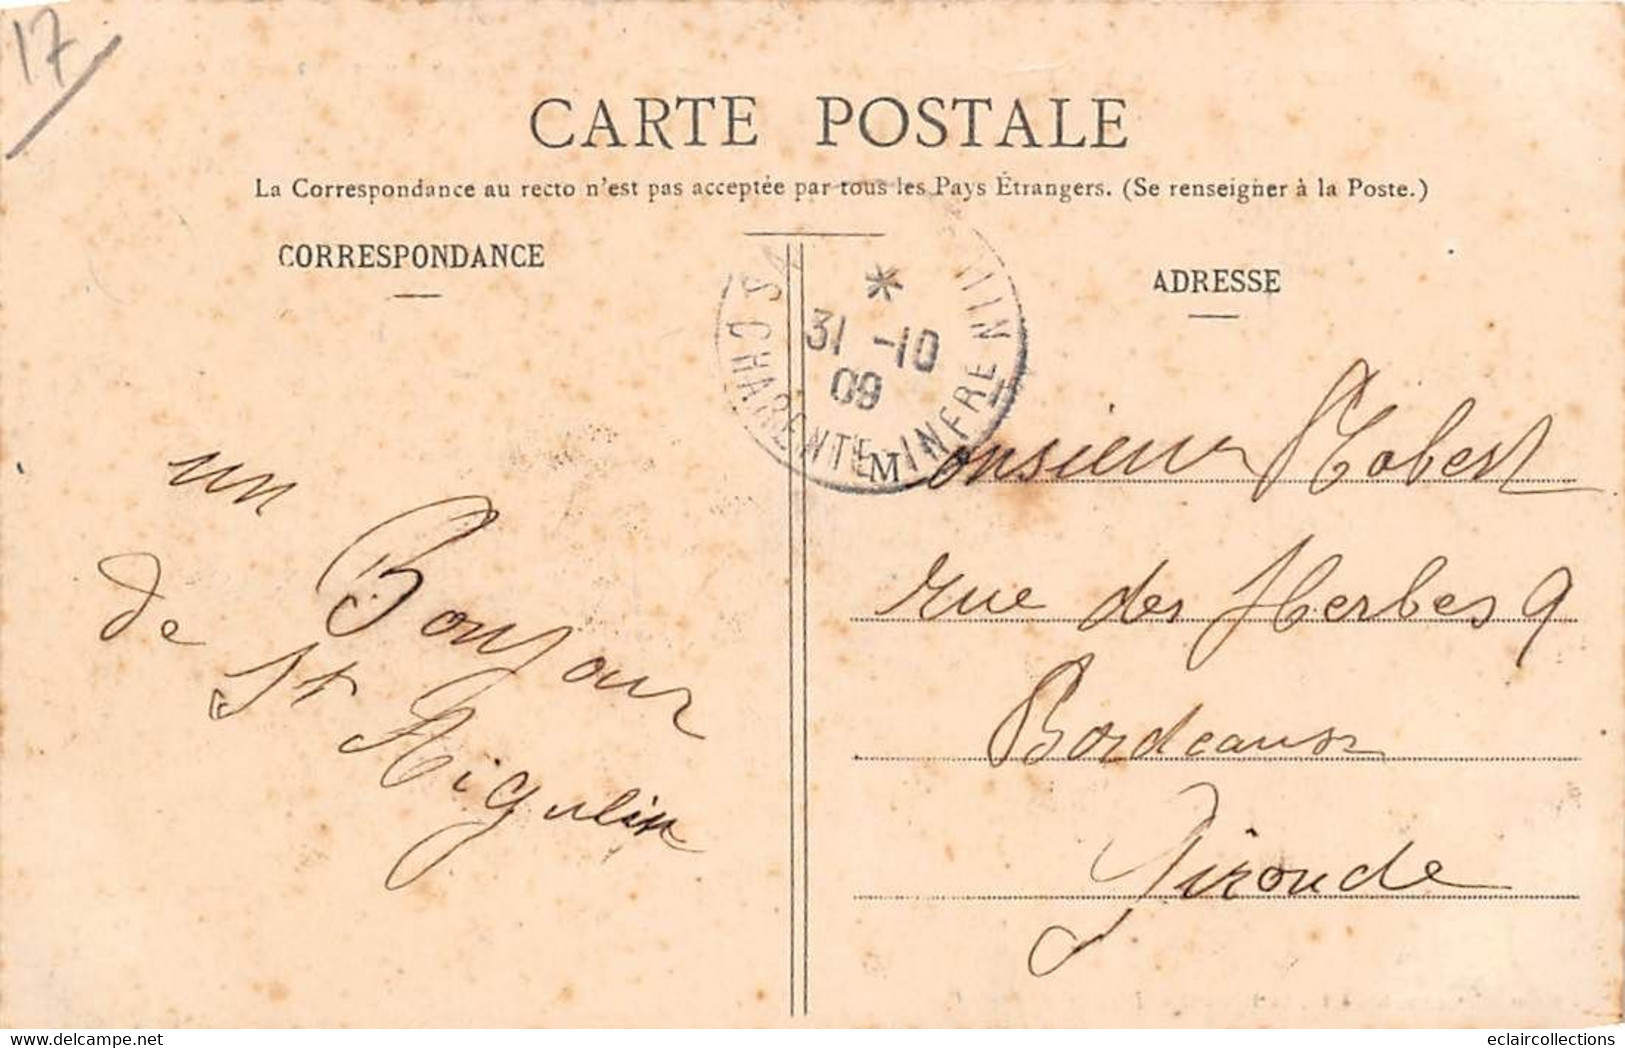 17
CARTE POSTALE
La Correspondance au recto n'est pas acceptée par tous les Pays Étrangers. (Se renseigner à la Poste.)
CORRESPONDANCE
ADRESSE
31 -10
09
CHARENTE-INFRE
un Bonjour
de St Aigulin
Monsieur Robert
rue des Herbes 9
Bordeaux
Gironde
www.delcampe.net
eclaircollections